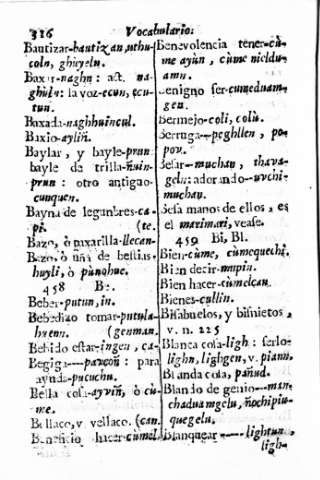 316 Vocabulario:
Bautizar-bautizan, uthu-
coln, ghuyeln.
Baxar-naghn: act. na-
ghuln: la voz-ecun, ecu-
tun.
Baxada-naghhuincul.
Baxio-ayliñ.
Baylar, y bayle-prun
bayle de trilla-ñuin-
prun: otro antiguo-
cunquen.
Bayna de legunbres-ca-
pi. (te.
Bazo, ò paxarilla-llecan-
Bazo, ò de bestias-
huyli, ò
458 Be.
Beber-putun, in.
Bebedizo tomar-putula-
huenn. (genman.
Bebido estar-ingen, ca-
para
ayuda-pucuchu.
Bella cosa-ayviñ, ò cu-
me.
Bellaco, v. vellaco. (can.
Beneficio hacer-cumel
Benevolencia tener-cu-
me ayùn, cùme nieldu-
amn.
Benigno ser-cumeduam-
gen.
Bermejo-coli, colù.
Berruga--peghllen, po-
pov.
Besar--muchan, thava-
geln: adorando--uvchi-
muchan.
Besa manos de ellos, es
el marimari, vease.
459 Bi, Bl.
Bien-cùme, cùmequechi.
Bien decir-
Bien hacer-cùmelcan.
Bienes-cullin.
Bisabuelos, y bisnietos,
v. n. 225
Blanca cosa-ligh: serlo-
lighn, lighgen, v.
Blanda cosa, pañud.
Blando de genio--man-
chaduamgelu, ñochipiu-
quegelu.
Blanquear----lightun,
ligh-